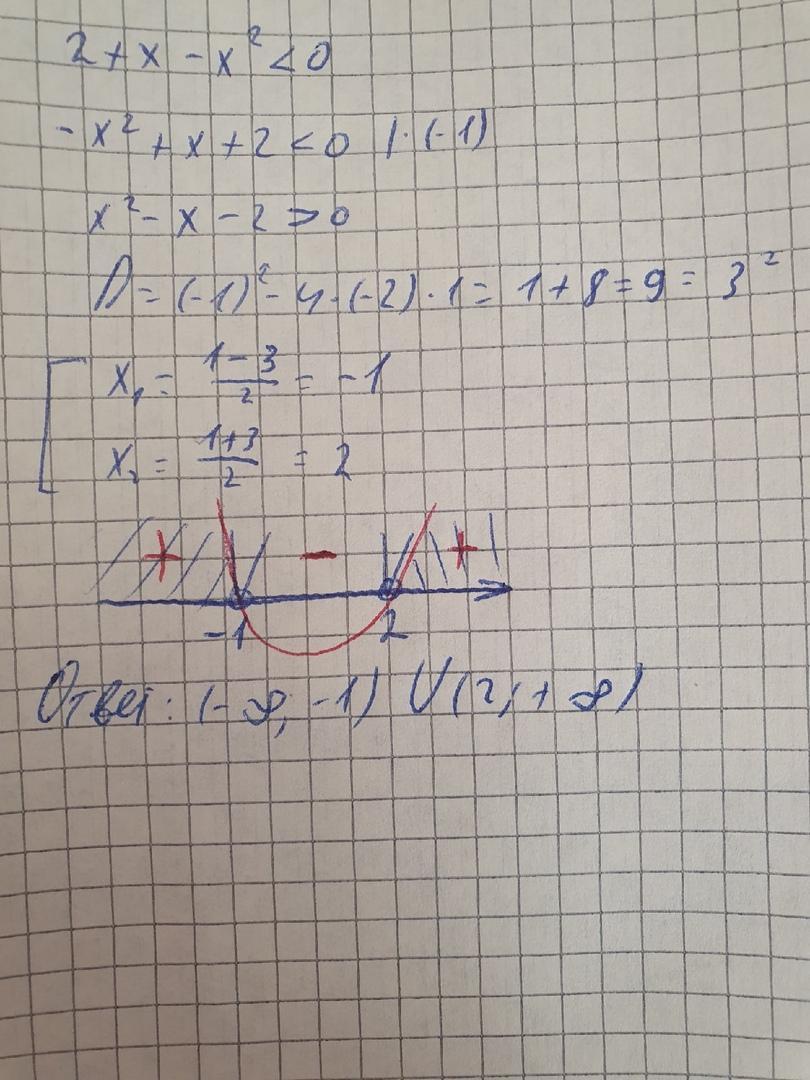 2 + x - x² < 0
- x² + x + 2 < 0 | · (-1)
x² - x - 2 > 0
D = (-1)² - 4 · (-2) · 1 = 1 + 8 = 9 = 3²
x₁ = (1 - 3)/2 = -1
x₂ = (1 + 3)/2 = 2
+ - +
-1 2
Ответ: (-∞; -1) ∪ (2; +∞)